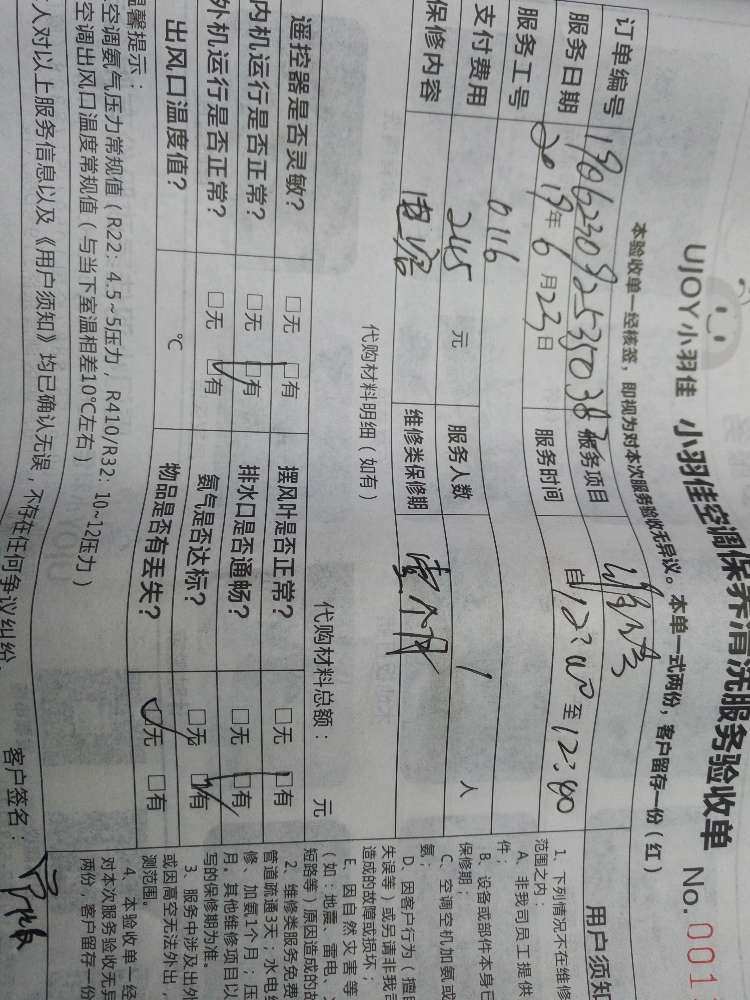 UJOY小羽佳 小羽佳空调保养清洗服务验收单 No.001
本验收单一经核签，即视为对本次服务验收无异议。本单一式两份，客户留存一份（红）
订单编号 服务项目
服务日期 2019年6月23日 服务时间 自12:00至12:40
服务工号 0116
支付费用 245元 服务人数 1人
保修内容 维修类保修期 壹个月
代购材料明细（如有） 代购材料总额： 元
遥控器是否灵敏？ □无 □有 摆风叶是否正常？ □无 □有
内机运行是否正常？ □无 □有 排水口是否通畅？ □无 □有
外机运行是否正常？ □无 □有 氨气是否达标？ □无 □有
出风口温度值？ ℃ 物品是否有丢失？ □无 □有
温馨提示：
空调氨气压力常规值（R22：4.5~5压力，R410/R32：10~12压力）
空调出风口温度常规值（与当下室温相差10℃左右）
人对以上服务信息以及《用户须知》均已确认无误，不存在任何争议纠纷。
客户签名：
用户须知
1、下列情况不在维修
范围之内：
A、非我司员工提供
件；
B、设备或部件本身已
保修期；
C、空调空机加氨或
氨；
D、因客户行为（擅自
失误等）或另请非我司
造成的故障或损坏；
E、因自然灾害等
（如：地震、雷电、
短路等）原因造成的故
2、维修类服务免费
管道疏通3天；水电维
修、加氨1个月；压
月。其他维修项目以
写的保修期为准。
3、服务中涉及出外
或因高空无法外出，
测范围。
4、本验收单一经
对本次服务验收无异
两份，客户留存一份